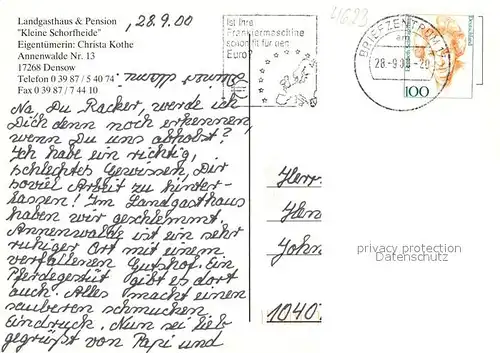 Landgasthaus & Pension
"Kleine Schorfheide"
Eigentümerin: Christa Kothe
Annenwalde Nr. 13
17268 Densow
Telefon 0 39 87 / 5 40 74
Fax 0 39 87 / 7 44 10
, 28.9.00
Deiner Mami.
Na, Du Racker, werde ich
Dich denn noch erkennen,
wenn Du uns abholst?
Ich habe ein richtig,
schlechtes Gewissen, Dir
soviel Arbeit zu hinter-
lassen! Im Landgasthaus
haben wir geschlemmt.
Annenwalde ist ein sehr
ruhiger Ort mit einem
verfallenen Gutshof. Ein
Pferdegestüt gibt es dort
auch. Alles macht einen
sauberen schmucken
Eindruck. Nun sei lieb
gegrüßt von Papi und
Ist Ihre
Frankiermaschine
schon fit für den
Euro?
€
41623
BRIEFZENTRUM 17
am
28-9.00-20
Deutschland
100
Herr
Hen
Johr
1040
privacy protection
Datenschutz